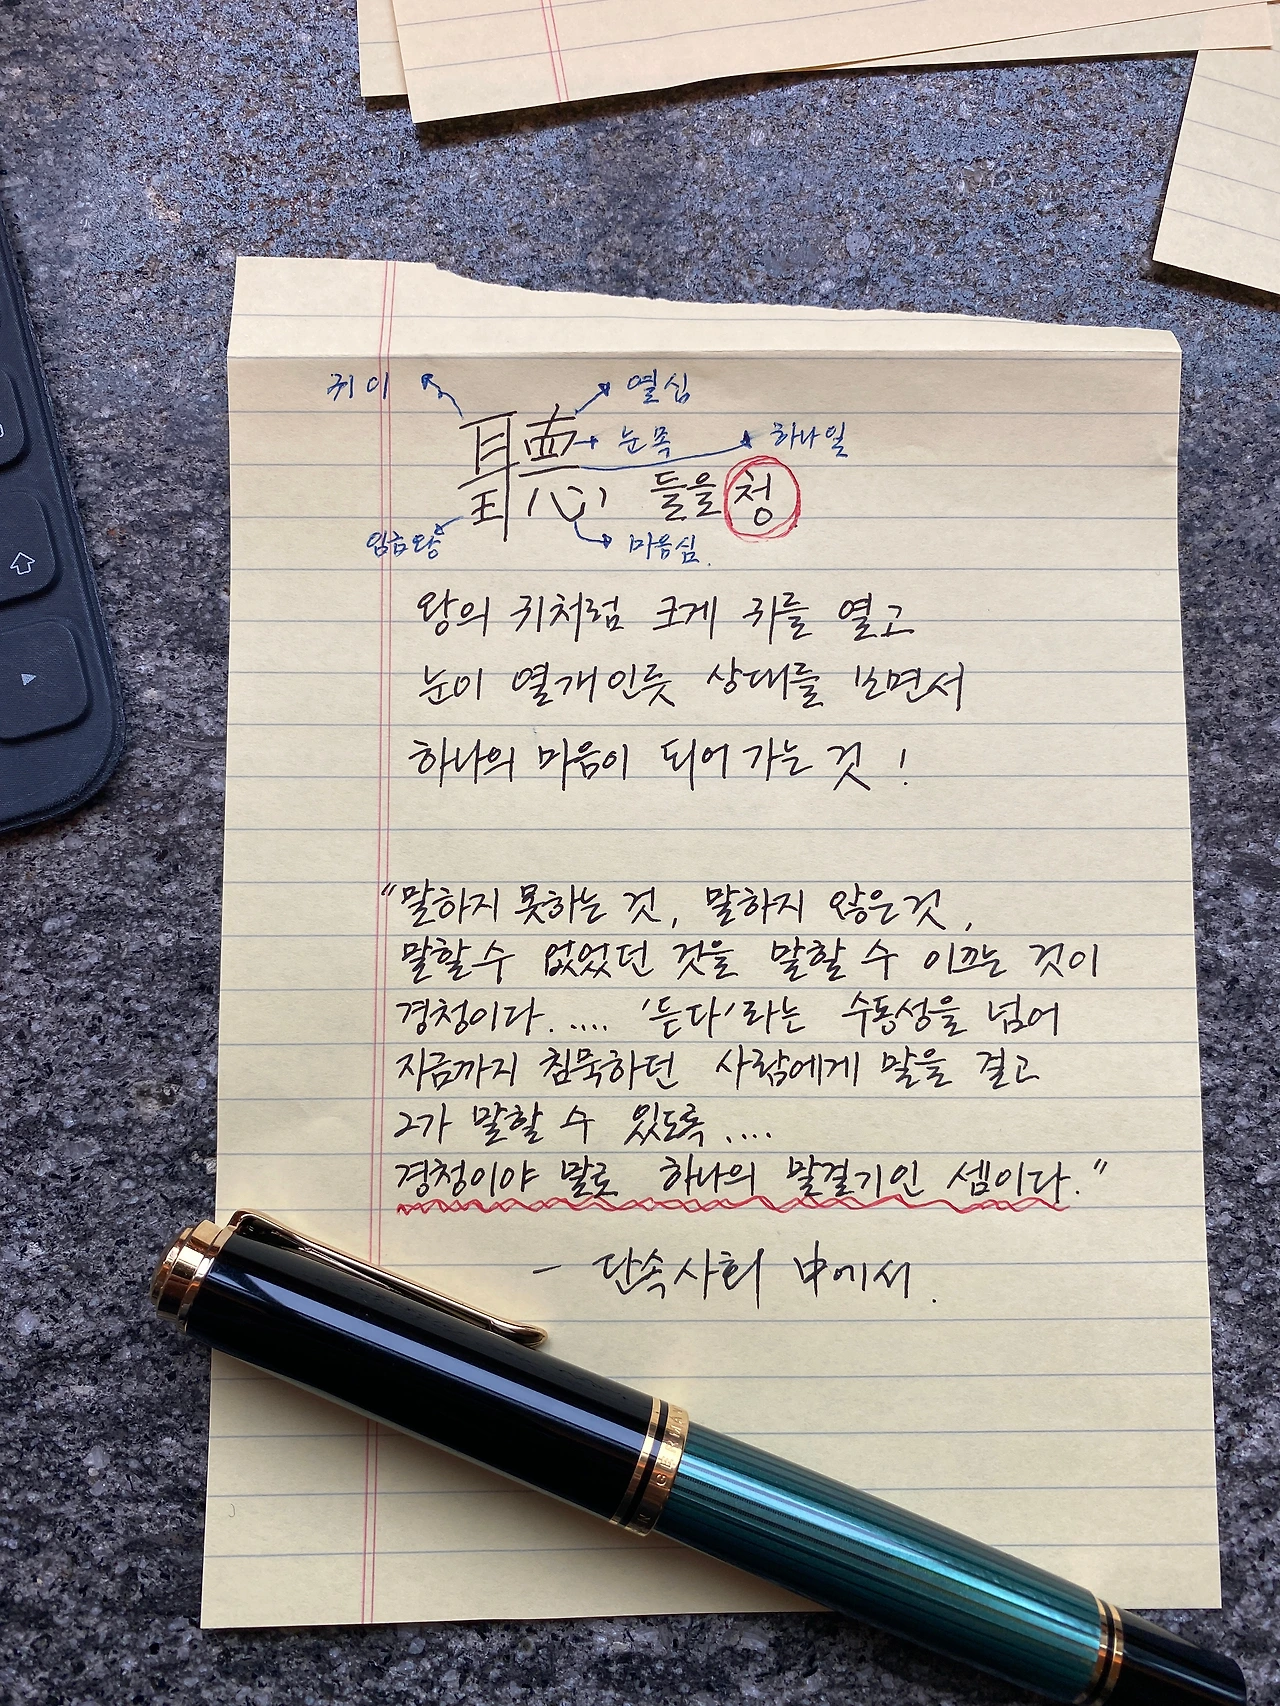 귀 이
열 심
聽
눈 목
하나 일
들을 청
임금 왕
마음 심.
왕의 귀처럼 크게 귀를 열고
눈이 열개인듯 상대를 보면서
하나의 마음이 되어 가는 것 !
"말하지 못하는 것, 말하지 않은 것,
말할 수 없었던 것을 말할 수 이끄는 것이
경청이다. .... '듣다'라는 수동성을 넘어
지금까지 침묵하던 사람에게 말을 걸고
그가 말할 수 있도록 ....
경청이야 말로 하나의 말걸기인 셈이다."
- 단속사회 中에서.
GERMANY